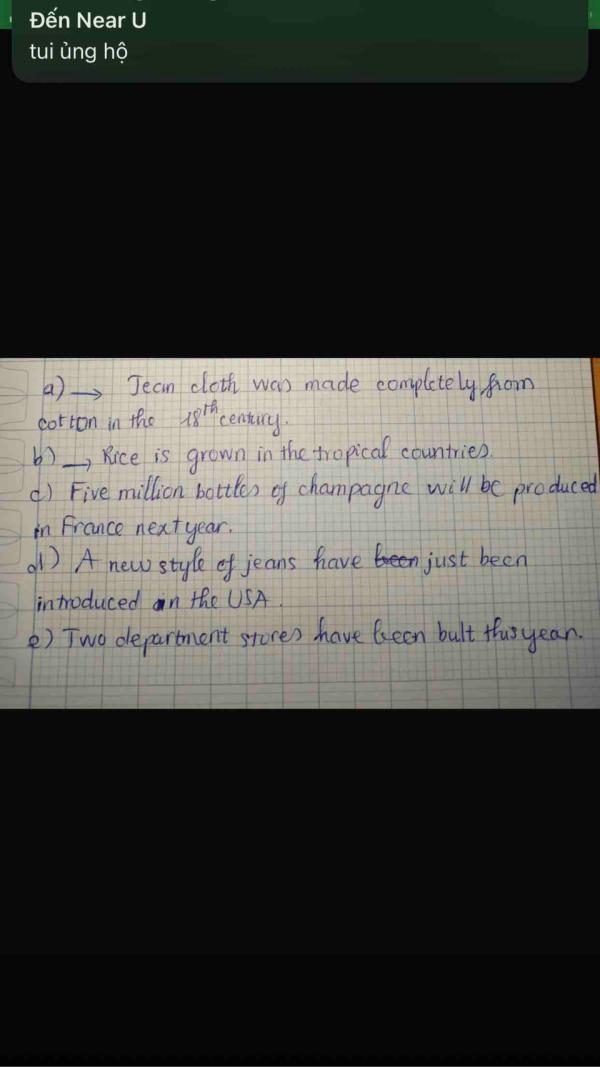 Đến Near U
tui ủng hộ
a) → Jean cloth was made completely from
cotton in the 18th century.
b) → Rice is grown in the tropical countries.
c) Five million bottles of champagne will be produced
in France next year.
d) A new style of jeans have been just been
introduced in the USA.
e) Two department stores have been bult this year.